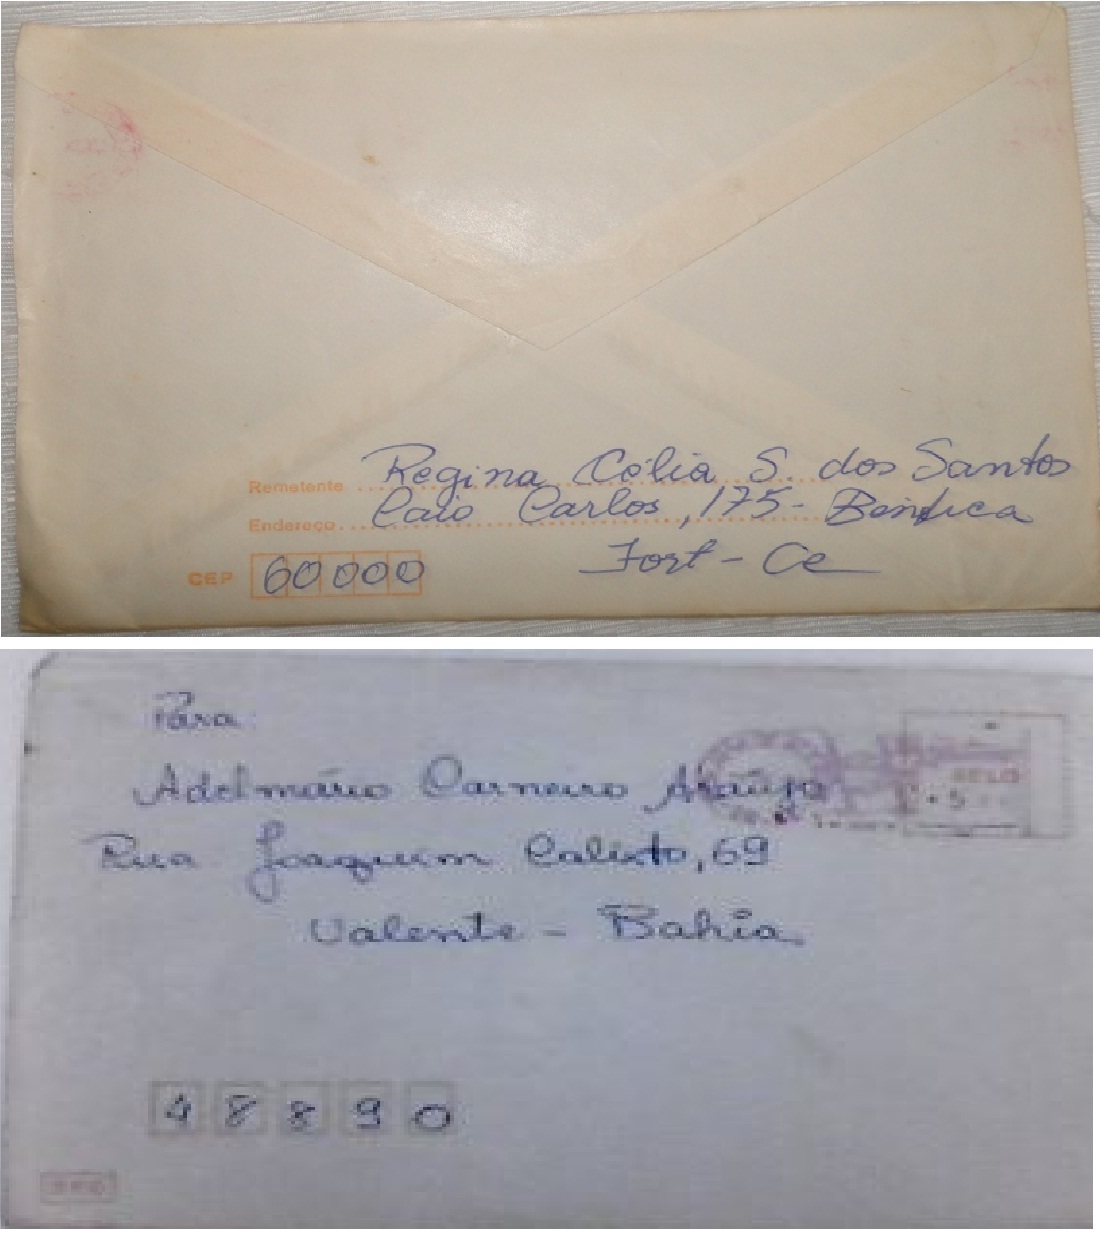 Remetente Regina Célia S. dos Santos
Endereço Caio Carlos, 175 - Benfica
CEP 60000 Fort - Ce
Para:
Adelmário Carneiro Araújo
SELO
Rua Joaquim Calixto, 69
Valente - Bahia
48890